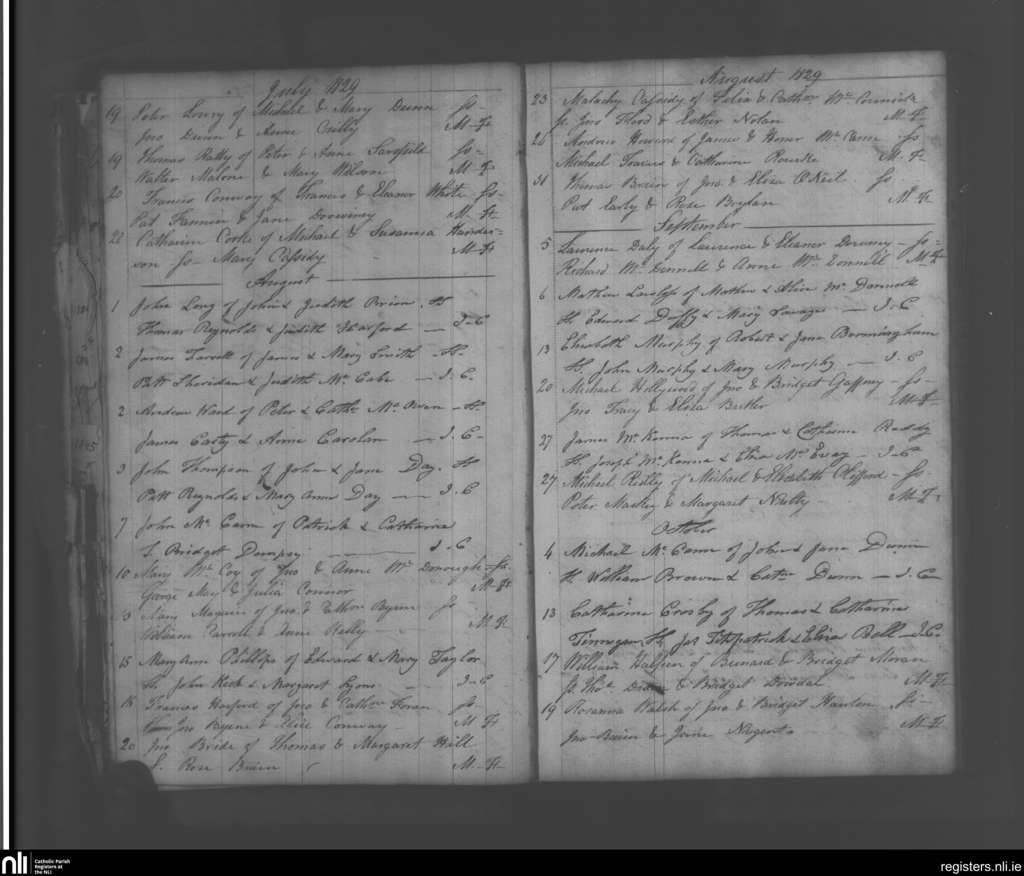 July 1829
19 Peter Lowry of Michael & Mary Dunn Ss -
Jno Dunn & Anne Reilly M - Ft
19 Thomas Rally of Peter & Anne Sarsfield Ss -
Walter Malone & Mary Wilson M - Ft
20 Francis Conway of Francis & Eleanor White Ss -
Pat Fannin & Jane M - Ft
22 Catharine Cooke of Michael & Susanna Hander=
son Ss - Mary Cassidy M - Ft
August
1 John Long of John & Judith Brien Ss
Thomas Reynolds & Judith Harford — J - C
2 James Farrell of James & Mary Smith - Ss.
Patt Sheridan & Judith Mc Cabe — J. C.
2 Andrew Ward of Peter & Cathe. Mc Owen - Ss.
James Carty & Anne Carolan — J. C -
3 John Thompson of John & Jane Day. Ss
Patt Reynolds & Mary Anne Day — J. C
7 John Mc Cann of Patrick & Catharine
S. Bridget Dempsy — J - C
10 Mary Mc Coy of Jno & Anne Mc Donough - Ss.
George May & Julia Connor M - Ft
Mary Maguire of Jno & Ellen Byrne Ss
William Farrell & Anne Kelly - M. Ft
15 Mary Anne Phillips of Edward & Mary Taylor
Ss. John Keck & Margaret Lyons — J - C
18 Francis Harford of Jno & Cathne Foran Ss -
Jno Byrne & Conway - M Ft
20 Jno Bride of Thomas & Margaret Hill
S. Rose Brien M - Ft
August 1829
23 Malachy Cassidy of Felix & Cathne Mc Cormick
Ss. Jno Flood & Esther Nolan M - Ft
26 Andrew Howard of James & Honor Mc Cann Ss
Michael Travers & Catharine Rourke M. Ft
31 Thomas Brien of Jno & Eliza O'Neil Ss
Pat Early & Rose Brydan M. Ft
September
5 Laurence Daly of Laurence & Eleanor Downey - Ss -
Richard Mc Donnell & Anne Mc Donnell - M. Ft
6 Mathew Lawless of Mathew & Alice Mc Donnell
Ss. Edward Duffy & Mary Savage — J - C
13 Elizabeth Murphy of Robert & Jane Bermingham
Ss. John Murphy & Mary Murphy — J. C
20 Michael Hollywood of Jno & Bridget Gaffney - Ss -
Jno Tracy & Eliza Butler M - Ft
27 James Mc Kenna of Thomas & Catharine Reddy
Ss. Joseph Mc Kenna & Eliza Mc Evoy - J - C
27 Michael Reilly of Michael & Elizabeth Clifford - Ss
Peter Mackey & Margaret M - F.
October
4 Michael Mc Cann of John & Jane Dunn
Ss. William Brown & Cathe. Dunn — J. C
13 Catharine Crosby of Thomas & Catharine
Finnegan Ss. Jas Fitzpatrick & Eliza Bell - J. C.
17 William Halpin of Bernard & Bridget Moran
Ss. Thos & Bridget Dowdal M - Ft
19 Rosanna Walsh of Jno & Bridget Hanlon Ss -
Jno Brien & Jane Nugent M - Ft
1845
nli
Catholic Parish
Registers at
the NLI
registers.nli.ie